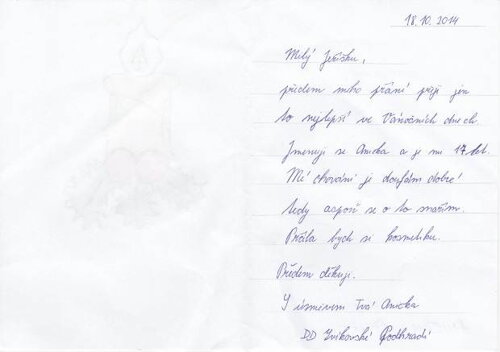 18.10.2014
Milý Ježíšku,
předem mého přání přeji jen
to nejlepší ve Vánočních dnech.
Jmenuji se Anicka a je mi 17 let.
Mé chování je doufám dobré!
tedy aspoň se o to snažím.
Přála bych si kosmetiku.
Předem děkuji.
S úsměvem Tvá Anicka
DD Zvíkovské Podhradí